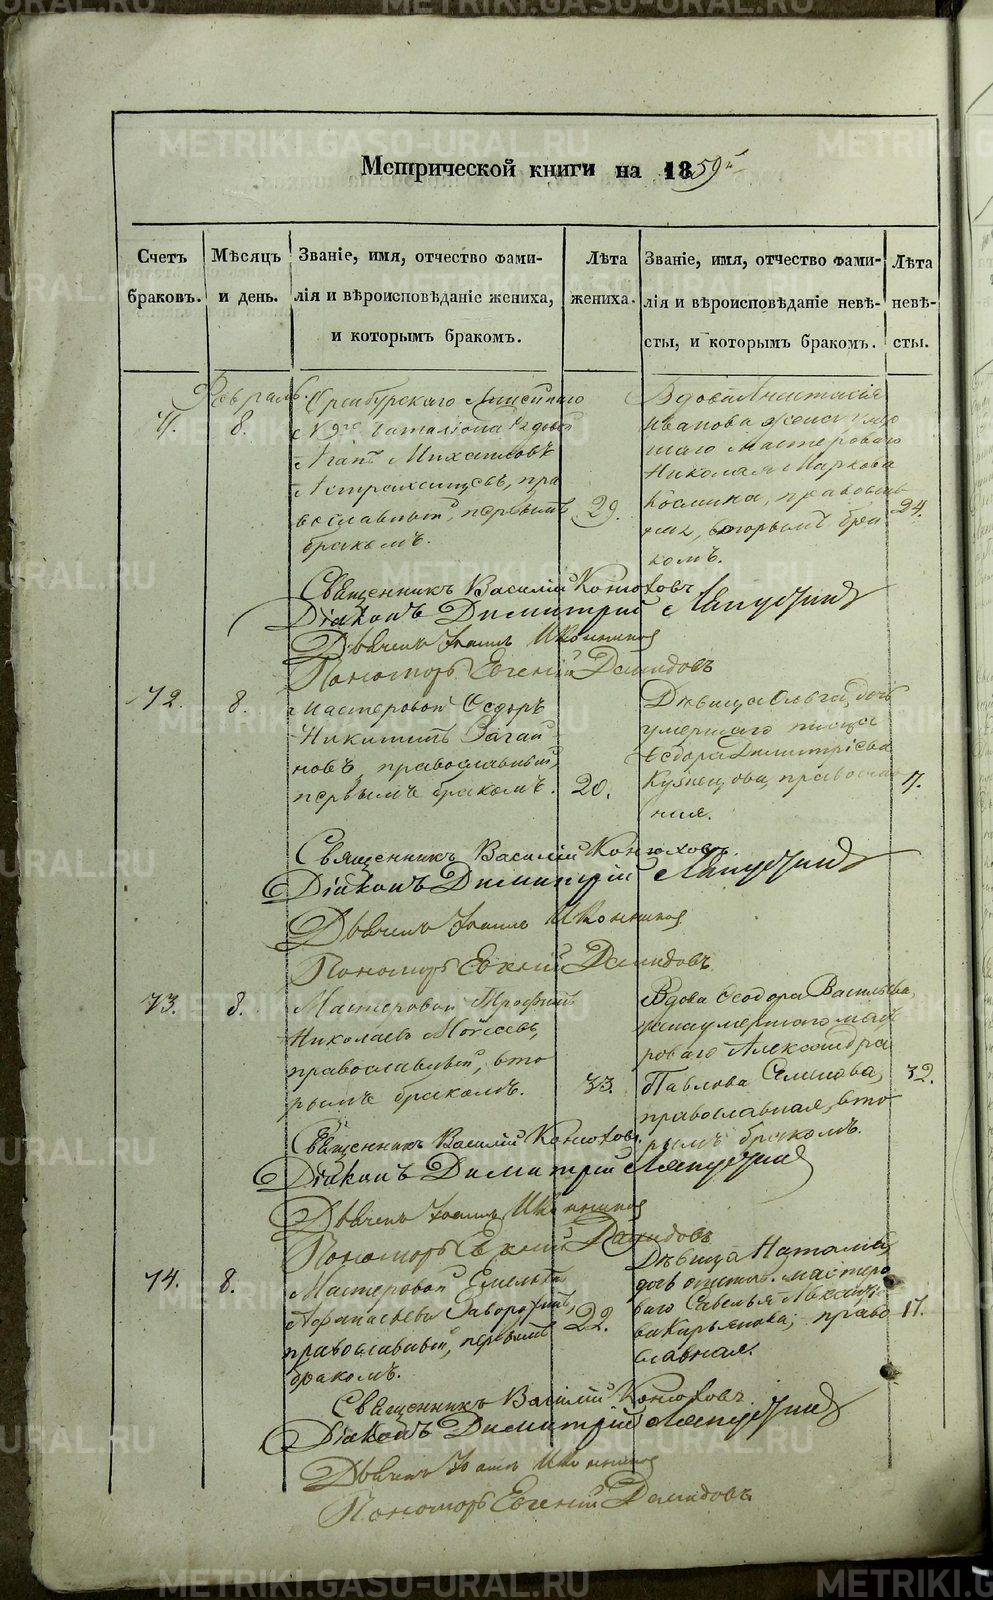 Метрической книги на 1859й
Счетъ браковъ.
Мѣсяцъ и день.
Званіе, имя, отчество фами-
лія и вѣроисповѣданіе жениха,
и которымъ бракомъ.
Лѣта жениха.
Званіе, имя, отчество фами-
лія и вѣроисповѣданіе невѣ-
сты, и которымъ бракомъ.
Лѣта невѣ-
сты.
Февраль.
8.
Оренбургскаго Линейнаго
баталіона рядовой
Михайловъ
пра
вославный, первымъ
бракомъ.
29.
Вдова Анастасія
Иванова жена умер
шаго Мастероваго
Николая Маркова
православ
ная, вторымъ бра
комъ.
24.
Священникъ Василій Конюховъ
Діаконъ Димитрій Ляпустинъ
Дьячекъ Иконников
Пономарь Евгеній Демидовъ
72.
8.
Мастеровой Ѳедоръ
Никитинъ Вагай
новъ, православный
первымъ бракомъ.
20.
Дѣвица Ольга, дочь
умершаго писца
Ѳедора Димитріева
Кузнецова, православ
ная.
17.
Священникъ Василій Конюховъ
Діаконъ Димитрій Ляпустинъ
Дьячекъ Иконников
Пономарь Евгеній Демидовъ
73.
8.
Мастеровой Трофимъ
Николаевъ Мойсеевъ,
православный, вто
рымъ бракомъ.
33.
Вдова Ѳеодора Васильева,
жена умершаго масте
роваго Александра
Павлова Семенова,
православная, вто
рымъ бракомъ.
32.
Священникъ Василій Конюховъ
Діаконъ Димитрій Ляпустинъ
Дьячекъ Иконников
Пономарь Евгеній Демидовъ
74.
8.
Мастеровой Емельянъ
Афанасьевъ
православный, первымъ
бракомъ.
22.
Дѣвица Наталія
дочь отстав. мастеро
ваго Савелья
право
славная.
17.
Священникъ Василій Конюховъ
Діаконъ Димитрій Ляпустинъ
Дьячекъ Иконников
Пономарь Евгеній Демидовъ
METRIKI.GASO-URAL.RU